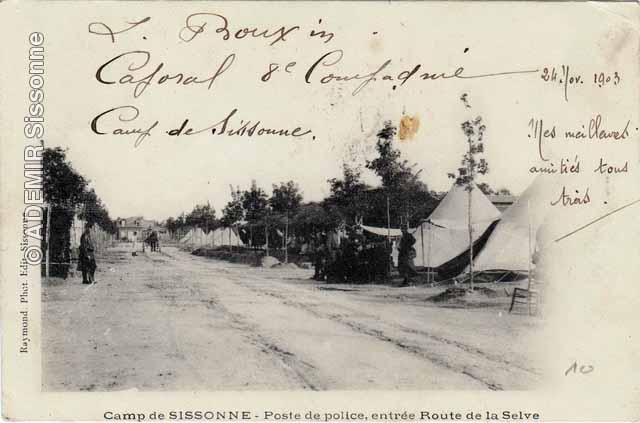 L. Rouxin
Caporal 8e Compagnie
Camp de Sissonne.
24 Nov. 1903
Mes meilleures
amitiés tous
trois.
10
Camp de SISSONNE - Poste de police, entrée Route de la Selve
Raymond Phot. Edit. Sissonne
© ADEMIR.Sissonne